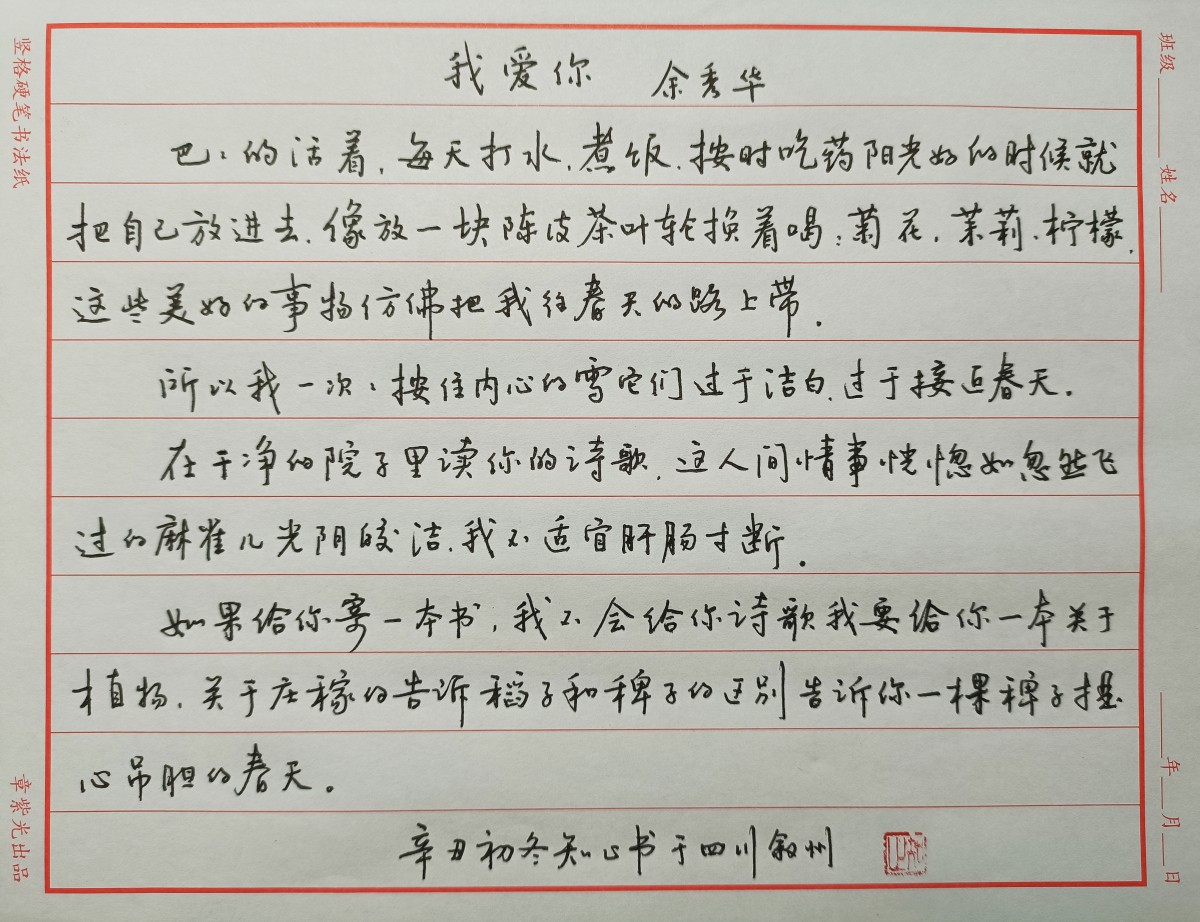 我爱你 余秀华
巴:的活着,每天打水、煮饭、按时吃药阳光好的时候就
把自己放进去、像放一块陈皮茶叶轮换着喝:菊花、茉莉、柠檬、
这些美好的事物仿佛把我往春天的路上带。
所以我一次:按住内心的雪它们过于洁白、过于接近春天。
在干净的院子里读你的诗歌、这人间情事恍惚如忽然飞
过的麻雀儿光阴皎洁、我不适宜肝肠寸断。
如果给你寄一本书,我不会给你诗歌我要给你一本关于
植物、关于庄稼的告诉稻子和稗子的区别告诉你一棵稗子提
心吊胆的春天。
辛丑初冬知心书于四川叙州
竖格硬笔书法纸
章紫光出品
班级 姓名
年 月 日